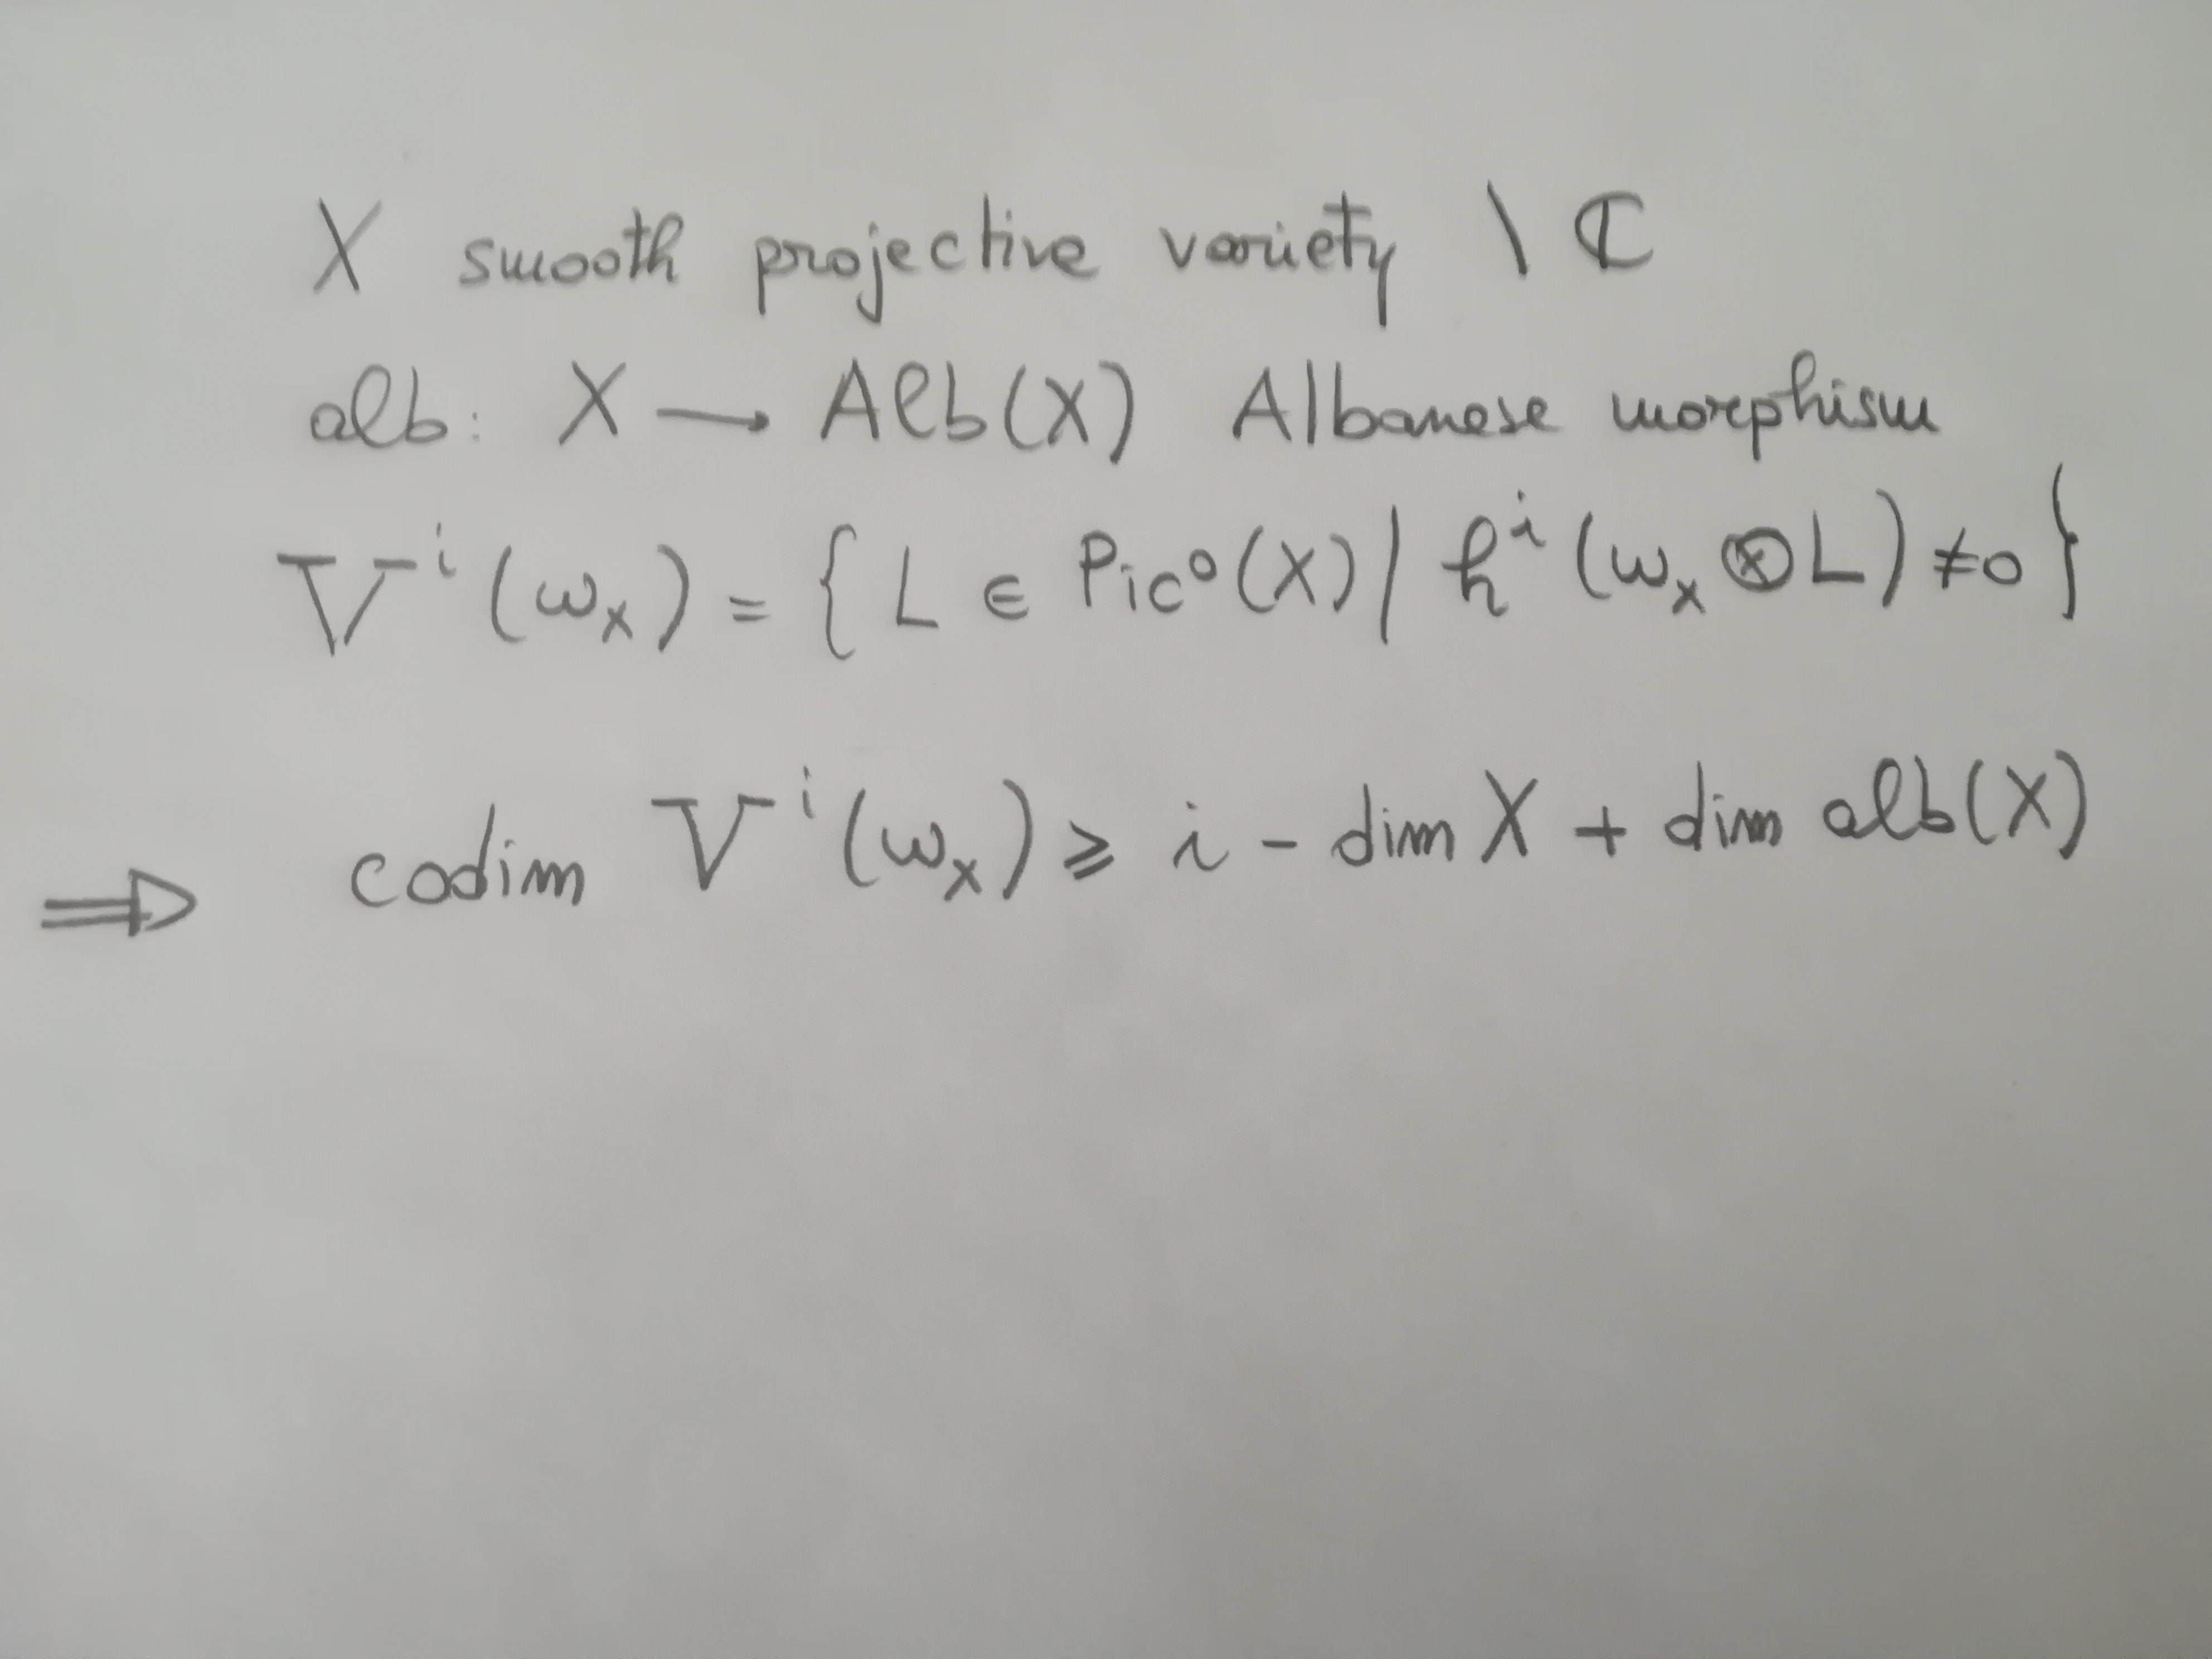 X smooth projective variety \ ℂ
alb: X → Alb(X) Albanese morphism
Vⁱ(ω_X) = { L ∈ Pic⁰(X) | hⁱ(ω_X ⊗ L) ≠ 0 }
⇒ codim Vⁱ(ω_X) ⩾ i - dim X + dim alb(X)